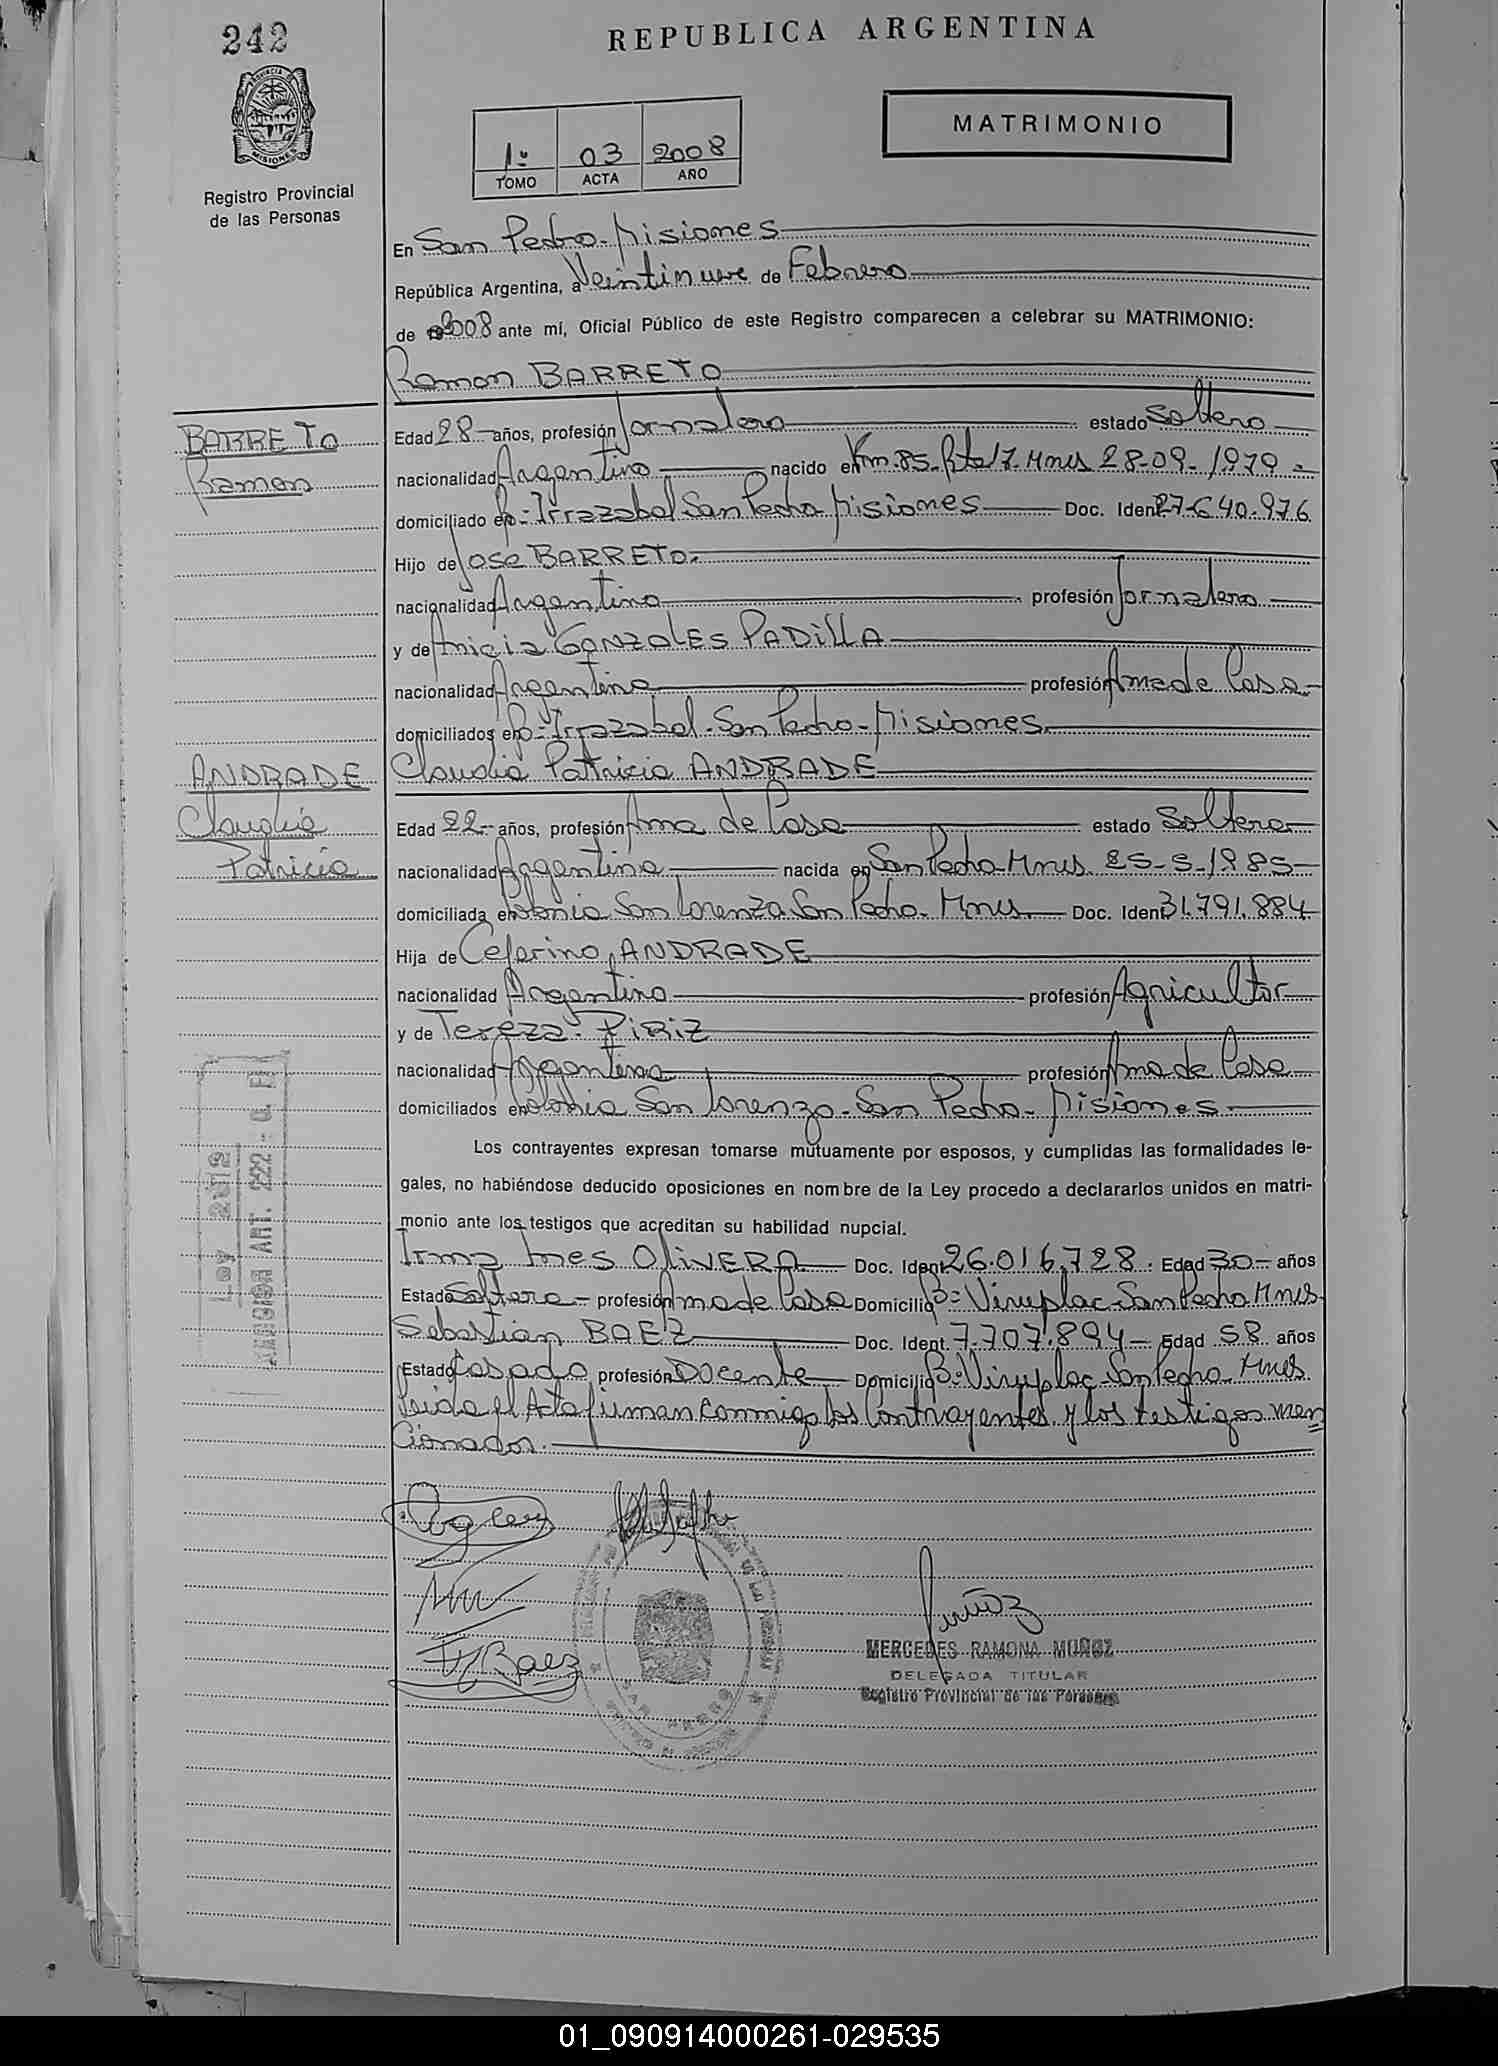 242
REPUBLICA ARGENTINA
MATRIMONIO
1º 03 2008
TOMO ACTA AÑO
Registro Provincial
de las Personas
En San Pedro - Misiones
República Argentina, a Veintinueve de Febrero
de 2008 ante mí, Oficial Público de este Registro comparecen a celebrar su MATRIMONIO:
Ramon BARRETO
BARRETO
Ramon
Edad 28 años, profesión Jornalero estado Soltero
nacionalidad Argentina nacido en Km. 85 - Rta 17 - Mnes 28-09-1979
domiciliado en Bº: Irrazabal San Pedro Misiones Doc. Ident. 27.640.976
Hijo de Jose BARRETO.
nacionalidad Argentino profesión Jornalero
y de Anicia GONZALES PADILLA
nacionalidad Argentina profesión Ama de Casa
domiciliados en Bº: Irrazabal - San Pedro - Misiones
ANDRADE
Claudia
Patricia
Claudia Patricia ANDRADE
Edad 22 años, profesión Ama de Casa estado Soltera
nacionalidad Argentina nacida en San Pedro Mnes. 25-5-1985
domiciliada en Colonia San Lorenzo San Pedro - Mnes. Doc. Ident. 31.791.884
Hija de Ceferino ANDRADE
nacionalidad Argentino profesión Agricultor
y de Tereza PIRIZ
nacionalidad Argentina profesión Ama de Casa
domiciliados en Colonia San Lorenzo - San Pedro - Misiones
Los contrayentes expresan tomarse mutuamente por esposos, y cumplidas las formalidades le-
gales, no habiéndose deducido oposiciones en nombre de la Ley procedo a declararlos unidos en matri-
monio ante los testigos que acreditan su habilidad nupcial.
Irma Ines OliVERA Doc. Ident. 26.016.728. Edad 30 años
Estado Soltera profesión Ama de Casa Domicilio Bº: Viruplac - San Pedro Mnes.
Sebastián BAEZ Doc. Ident. 7.707.894 Edad 58 años
Estado Casado profesión Docente Domicilio Bº: Viruplac - San Pedro - Mnes.
Leida el Acta firman conmigo los Contrayentes y los testigos men
cionados.
Baez
Muñoz
MERCEDES RAMONA MUÑOZ
DELEGADA TITULAR
Registro Provincial de las Personas
01_090914000261-029535